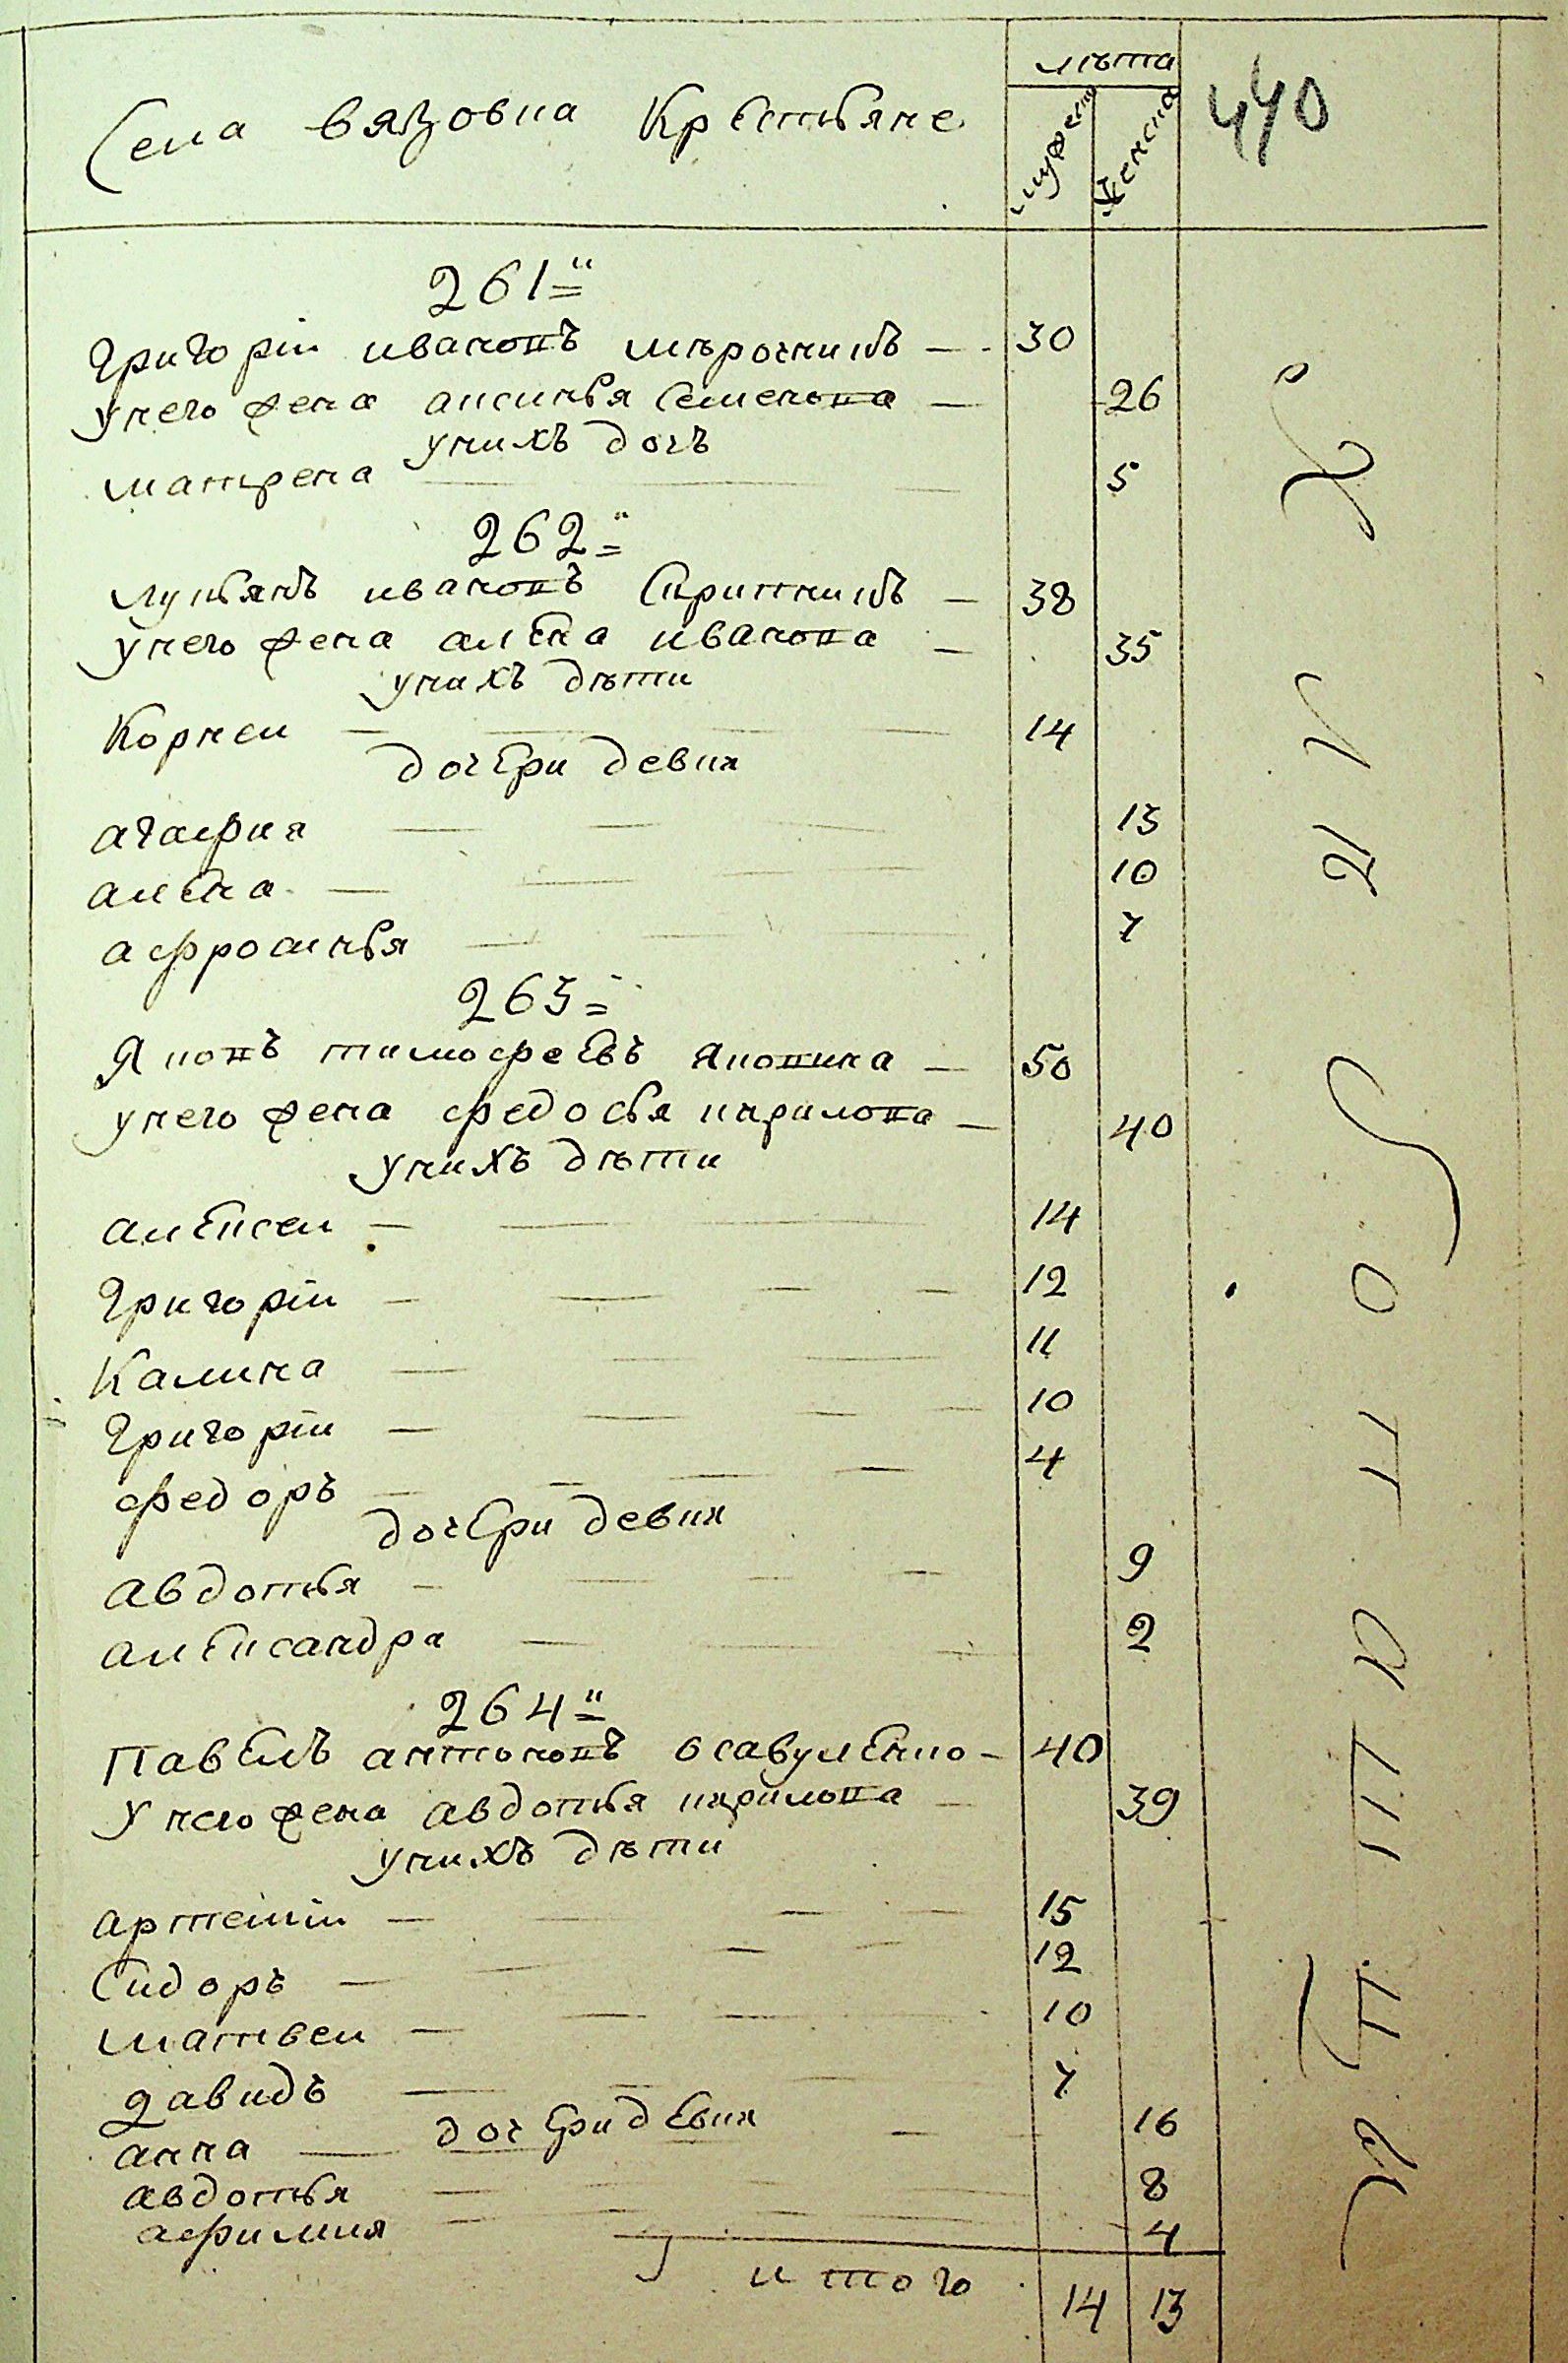 лѣта
Села вязовка Крестьяне
мужеск
женска
440
261й
григоріи ивановъ мѣрочникъ — 30
унего жена аксинья Семенова — 26
унихъ дочь
матрена 5
262й
лукьянъ ивановъ Скрипникъ — 38
унего жена алена иванова — 35
унихъ дѣти
Корнеи — 14
дочери девки
агафия — 13
алена — 10
афросинья — 7
263
Яковъ тимофеевъ яковина — 50
унего жена федосья кирилова — 40
унихъ дѣти
алексеи — 14
григоріи — 12
Калина — 11
григоріи — 10
федоръ — 4
дочери девки
авдотья — 9
александра — 2
264й
Павелъ антоновъ осавуленко — 40
Унего жена авдотья кирилова — 39
унихъ дѣти
артеміи — 15
Сидоръ — 12
матвеи — 10
давидъ — 7
дочери девки
анна — 16
авдотья — 8
афимия — 4
итого 14 13